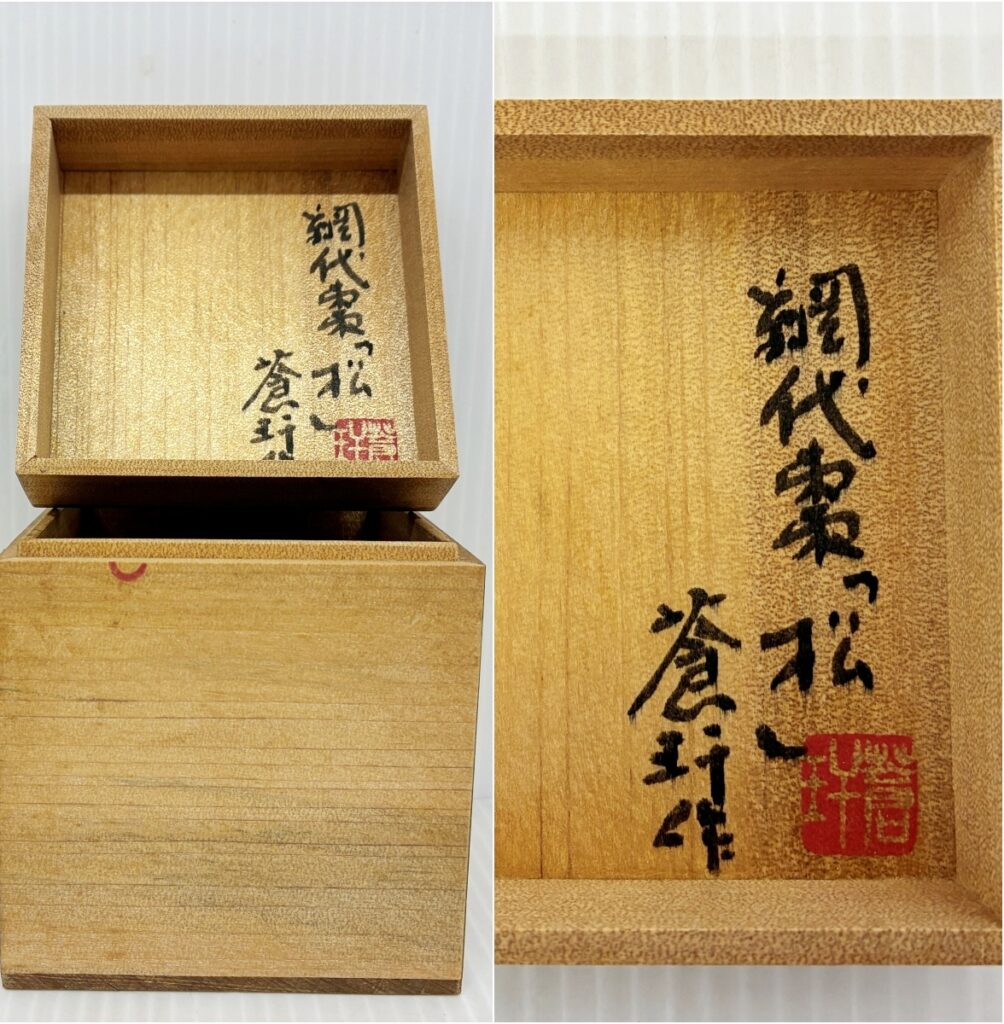 網代棗「松」
蒼玕
網代棗「松」
蒼玕作
蒼玕